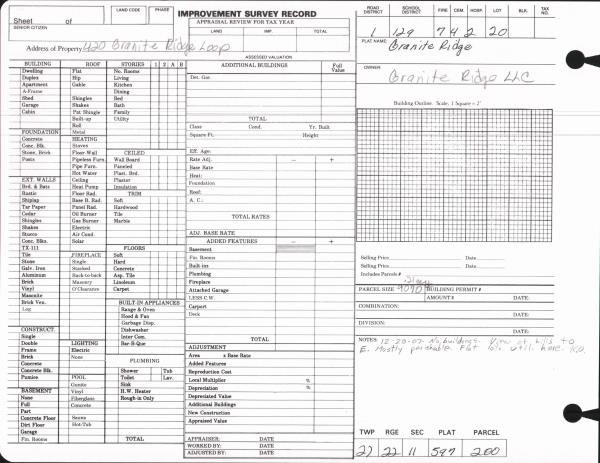 Sheet of
SENIOR CITIZEN
LAND CODE PHASE
IMPROVEMENT SURVEY RECORD
APPRAISAL REVIEW FOR TAX YEAR
LAND IMP. TOTAL
ASSESSED VALUATION
Address of Property 420 Granite Ridge Loop
ROAD DISTRICT SCHOOL DISTRICT FIRE CEM. HOSP. LOT BLK. TAX NO.
1 129 7 4 2 20
PLAT NAME:
Granite Ridge
OWNER:
Granite Ridge LLC
Building Outline. Scale, 1 Square = 2'
BUILDING ROOF STORIES 1 2 A B
Dwelling Flat No. Rooms
Duplex Hip Living
Apartment Gable Kitchen
A-Frame Dining
Shed Shingles Bed
Garage Shakes Bath
Cabin Pat Shingle Family
Built-up Utility
Roll
FOUNDATION Metal
Concrete HEATING
Conc. Blk. Stoves CEILED
Stone, Brick Floor-Wall Wall Board
Posts Pipeless Furn. Paneled
Pipe Furn. Plast. Brd.
Hot Water Plaster
EXT. WALLS Ceiling Insulation
Brd. & Bats Heat Pump TRIM
Rustic Floor Rad. Soft
Shiplap Base B. Rad. Hardwood
Tar Paper Panel Rad. Tile
Cedar Oil Burner Marble
Shingles Gas Burner
Shakes Electric
Stucco Air Cond.
Conc. Blks. Solar FLOORS
TX-111
Tile FIREPLACE Soft
Stone Single Hard
Galv. Iron Stacked Concrete
Aluminum Back-to-back Asp. Tile
Brick Masonry Linoleum
Vinyl O'Clearance Carpet
Masonite
Brick Ven. BUILT-IN APPLIANCES
Log Range & Oven
Hood & Fan
Garbage Disp.
CONSTRUCT. Dishwasher
Single Inter Com.
Double LIGHTING Bar-B-Que
Frame Electric
Brick None PLUMBING
Concrete
Concrete Blk. Shower Tub
Pumice POOL Toilet Lav.
Gunite Sink
BASEMENT Vinyl H.W. Heater
None Fiberglass Rough-in Only
Full Concrete
Part
Concrete Floor Sauna
Dirt Floor Hot-Tub
Garage
Fin. Rooms TOTAL
ADDITIONAL BUILDINGS Full Value
Det. Gar.
TOTAL
Class Cond. Yr. Built
Square Ft. Height
Eff. Age:
Rate Adj. — +
Base Rate
Heat:
Foundation
Roof:
A. C.:
TOTAL RATES
ADJ. BASE RATE
ADDED FEATURES — +
Basement
Fin. Rooms
Built-ins
Plumbing
Fireplace
Attached Garage
LESS C.W.
Carport
Deck
TOTAL
ADJUSTMENT
Area x Base Rate
Added Features
Reproduction Cost
Local Multiplier %
Depreciation %
Depreciated Value
Additional Buildings
New Construction
Appraised Value
APPRAISER: DATE
WORKED BY: DATE
ADJUSTED BY: DATE
Selling Price Date
Selling Price Date
Includes Parcels #
PARCEL SIZE BUILDING PERMIT #
AMOUNT $ DATE:
COMBINATION:
DATE:
DIVISION:
DATE:
NOTES: 12-20-07- No buildings. View of hills to
E. Mostly permable. Flat lot. Util. here.
TWP RGE SEC PLAT PARCEL
27 22 11 597 200